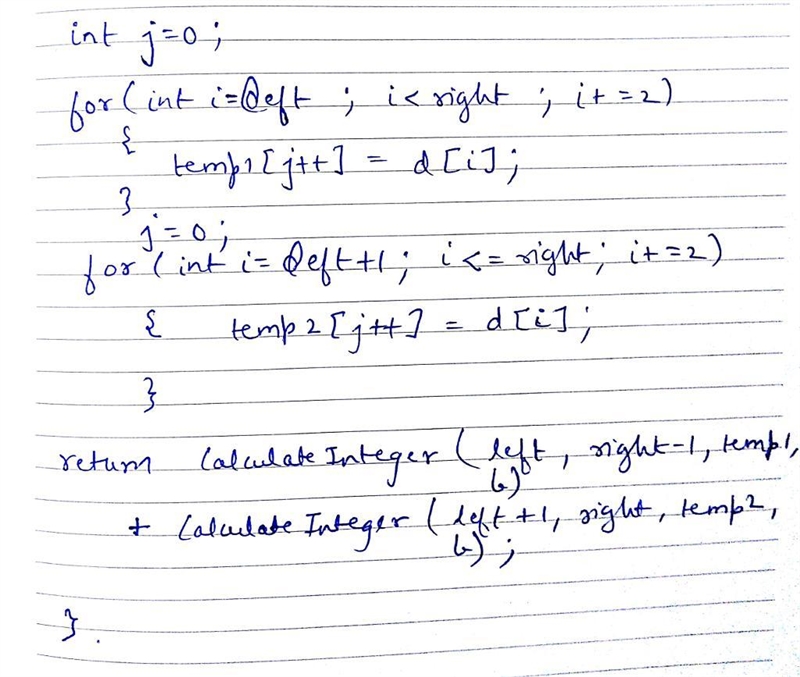 int j=0;
for(int i=left ; i< right ; i+=2)
{
temp1[j++] = d[i];
}
j=0;
for(int i=left+1; i<=right; i+=2)
{ temp2[j++] = d[i];
}
return CalculateInteger(left, right-1, temp1,
b)
+ CalculateInteger(left+1, right, temp2,
b);
}.